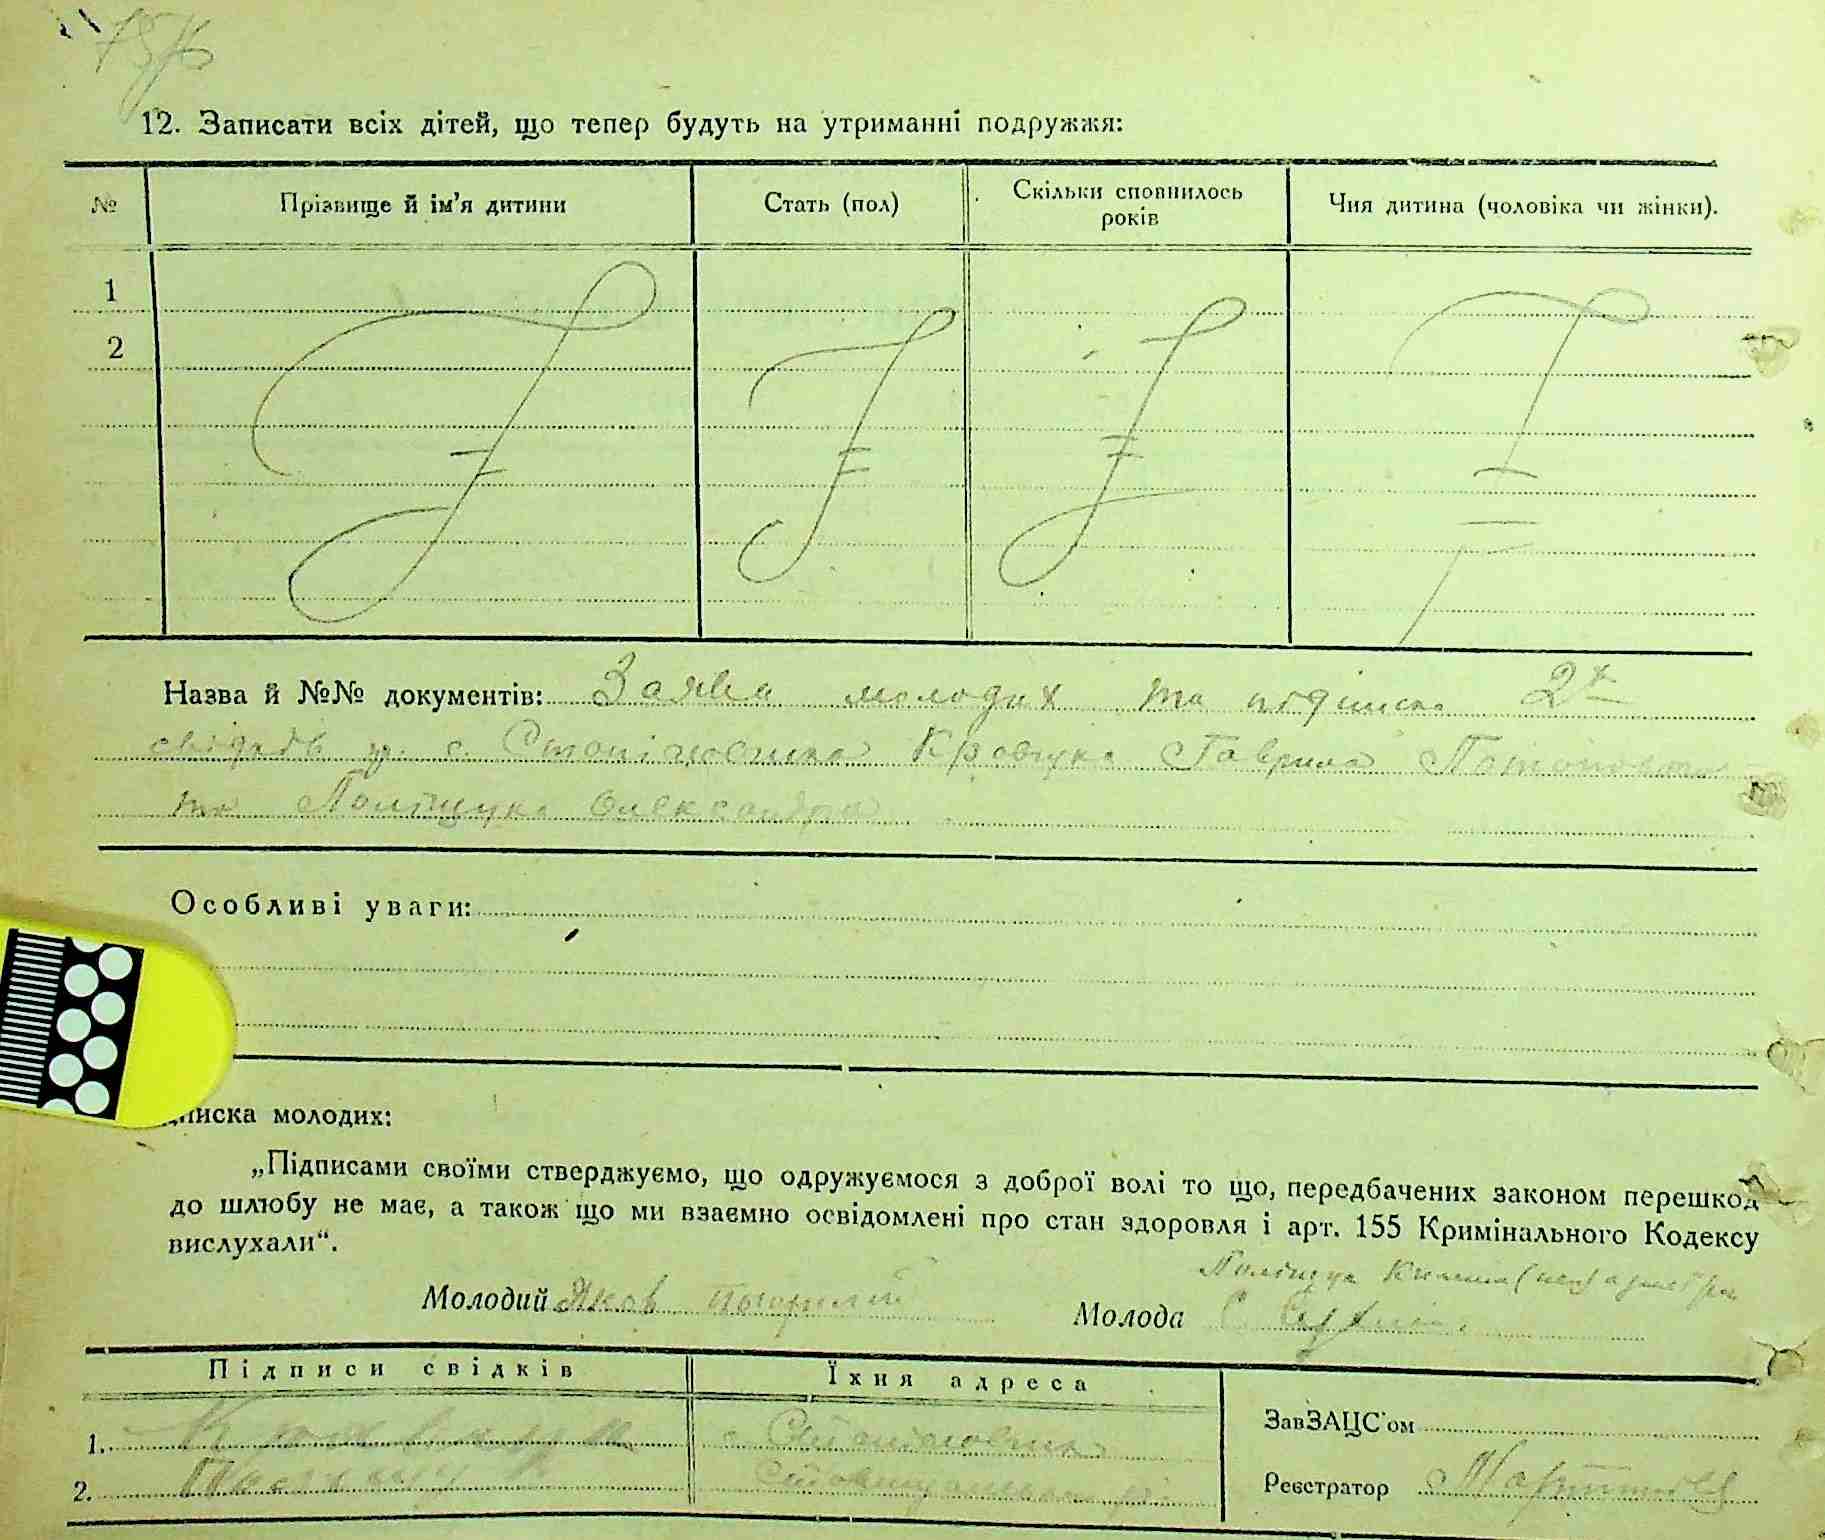 12. Записати всіх дітей, що тепер будуть на утриманні подружжя:
№ Прізвище й ім'я дитини Стать (пол) Скільки сповнилось років Чия дитина (чоловіка чи жінки).
1
2
Назва й №№ документів: Заява молодих та підписка 2х
свідків з. с. Кравчука Гаврила
та Поліщука Олександра
Особливі уваги:
писка молодих:
„Підписами своїми стверджуємо, що одружуємося з доброї волі то що, передбачених законом перешкод
до шлюбу не має, а також що ми взаємно освідомлені про стан здоровля і арт. 155 Кримінального Кодексу
вислухали“.
Поліщук
Молодий Яков Молода
Підписи свідків Їхня адреса
ЗавЗАЦС'ом
1.
Реєстратор
2.